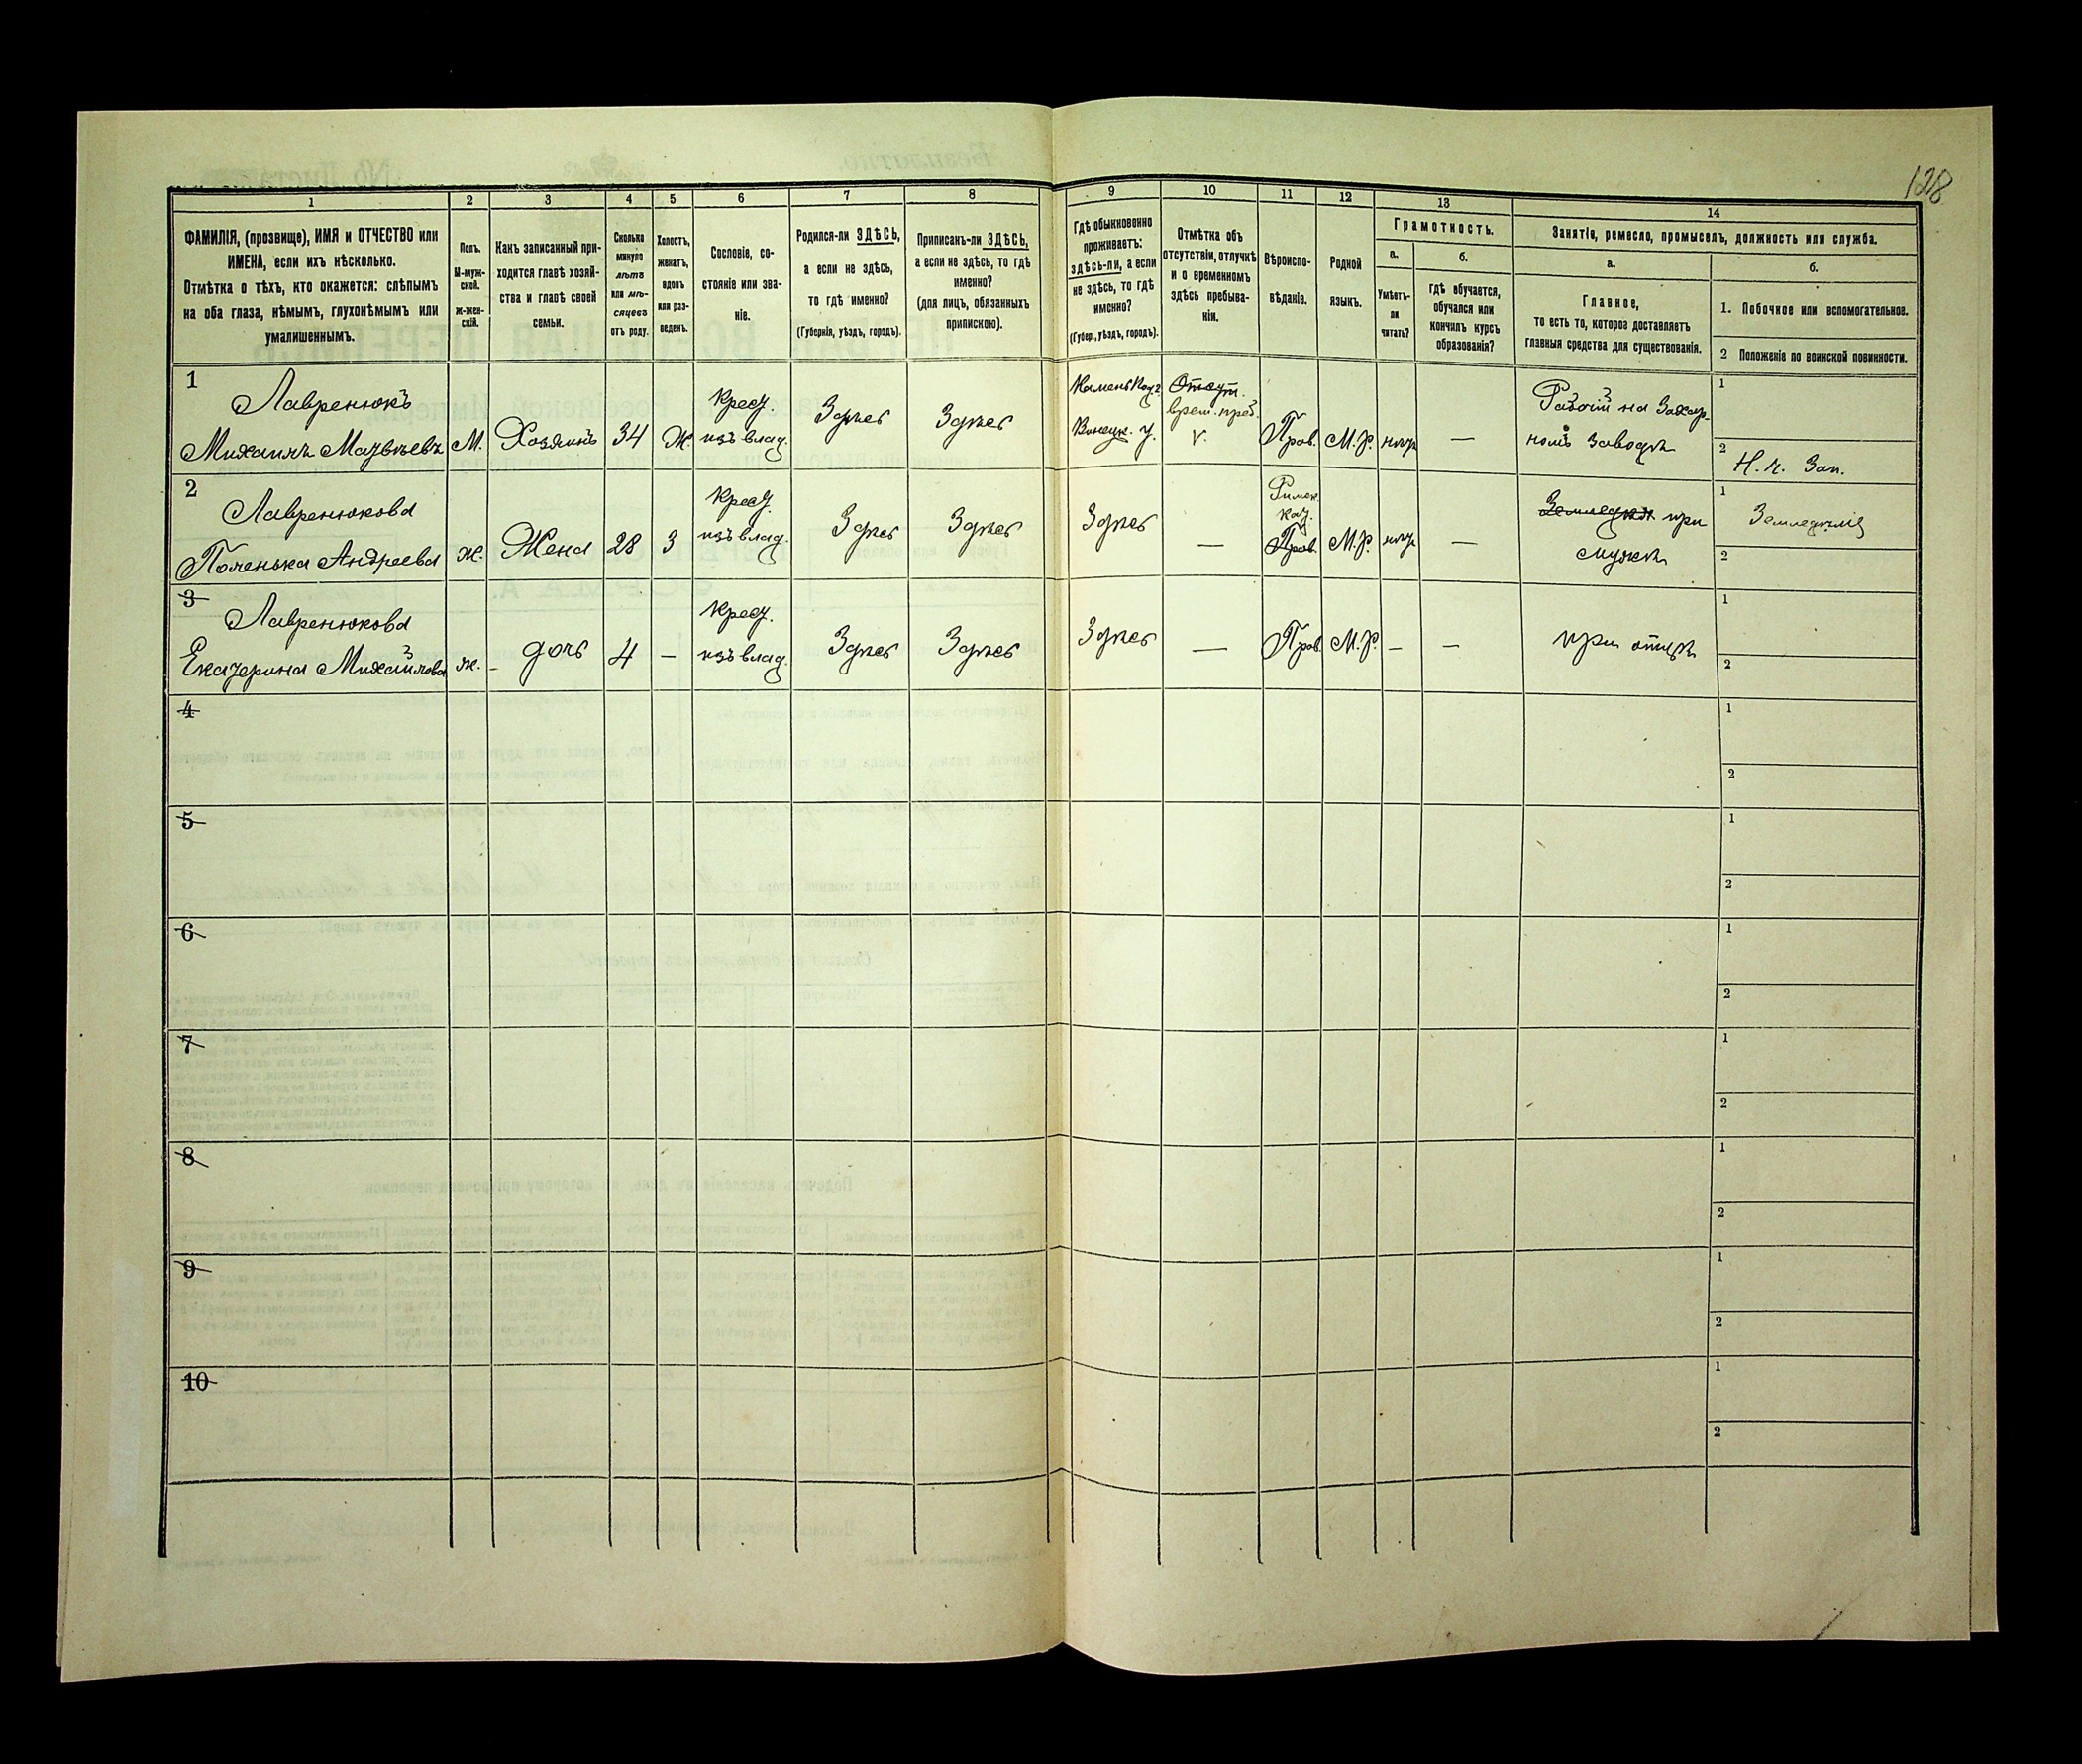 128
1
2
3
4
5
6
7
8
9
10
11
12
13
14
ФАМИЛІЯ, (прозвище), ИМЯ и ОТЧЕСТВО или
ИМЕНА, если ихъ нѣсколько.
Отмѣтка о тѣхъ, кто окажется: слѣпымъ
на оба глаза, нѣмымъ, глухонѣмымъ или
умалишеннымъ.
Полъ.
М-муж-
ской.
ж-жен-
скій.
Какъ записанный при-
ходится главѣ хозяй-
ства и главѣ своей
семьи.
Сколько
минуло
лѣтъ
или мѣ-
сяцевъ
отъ роду.
Холостъ,
женатъ,
вдовъ
или раз-
веденъ.
Сословіе, со-
стояніе или зва-
ніе.
Родился-ли ЗДѢСЬ,
а если не здѣсь,
то гдѣ именно?
(Губернія, уѣздъ, городъ).
Приписанъ-ли ЗДѢСЬ,
а если не здѣсь, то гдѣ
именно?
(для лицъ, обязанныхъ
припискою).
Гдѣ обыкновенно
проживаетъ:
здѣсь-ли, а если
не здѣсь, то гдѣ
именно?
(Губер., уѣздъ, городъ).
Отмѣтка объ
отсутствіи, отлучкѣ
и о временномъ
здѣсь пребыва-
ніи.
Вѣроиспо-
вѣданіе.
Родной
языкъ.
Грамотность.
а.
Умѣетъ-
ли
читать?
б.
гдѣ обучается,
обучался или
кончилъ курсъ
образованія?
Занятіе, ремесло, промыселъ, должность или служба.
а.
Главное,
то есть то, которое доставляетъ
главныя средства для существованія.
б.
1. Побочное или вспомогательное.
2 Положеніе по воинской повинности.
1
Лавренюкъ
Михаилъ Матвѣевъ
М.
Хозяинъ
34
Ж.
Крест.
изъ влад.
Здѣсь
Здѣсь
Отсут.
врем. преб.
V.
Прав.
М.Р.
нѣтъ
—
Рабочій на Сахар-
номъ заводѣ
1
2
Н. ч. Зап.
2
Лавренюкова
Поленька Андреева
ж.
Жена
28
З
Крест.
изъ влад.
Здѣсь
Здѣсь
Здѣсь
—
Римск.
кат.
Прав.
М.Р.
нѣтъ
—
при
мужѣ
1
Земледѣліе
2
3
Лавренюкова
Екатерина Михайлова
ж.
дочь
4
—
Крест.
изъ влад.
Здѣсь
Здѣсь
Здѣсь
—
Прав.
М.Р.
—
—
при отцѣ
1
2
4
1
2
5
1
2
6
1
2
7
1
2
8
1
2
9
1
2
10
1
2